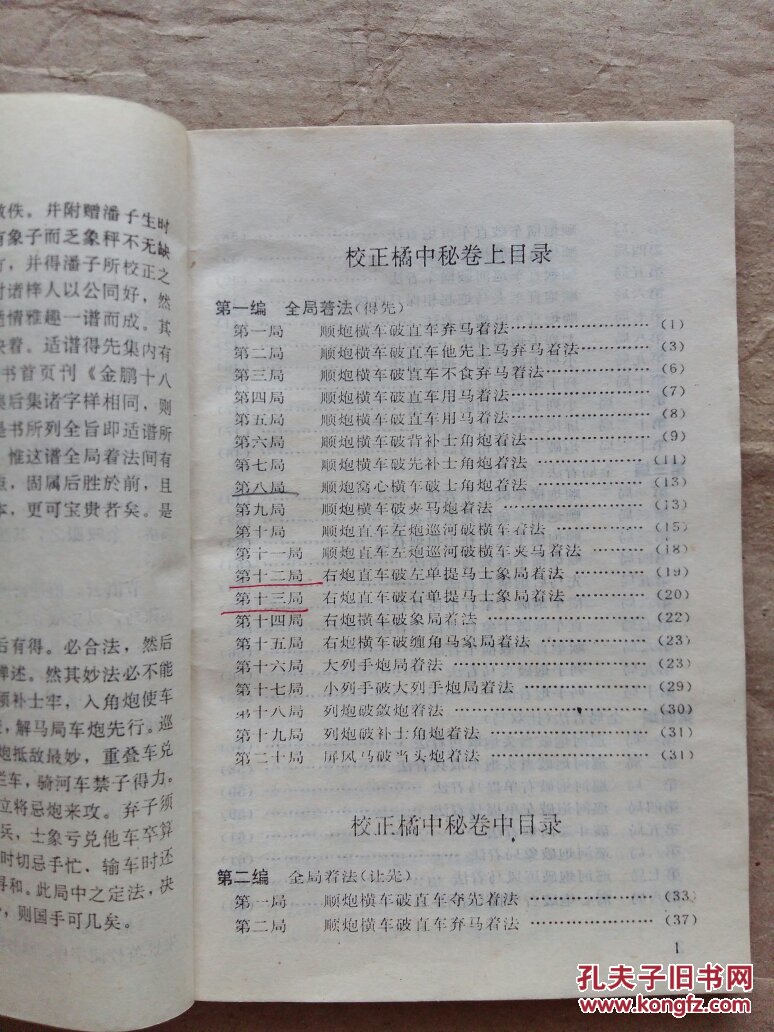 散佚。并附赠潘子生时
有象子而乏象秤不无缺
并得潘子所校正之
诸梓人以公同好，然
情雅趣一谱而成。其
着。适谱得先集内有
书首页刊《金鹏十八
后集诸字样相同，则
是书所列全旨即适谱所
惟这谱全局着法间有
固属后胜於前，且
更可宝贵者矣。是
后有得。必合法，然后
述。然其妙法必不能
补士牢，入角炮使车
解马局车炮先行。巡
炮抵敌最妙，重叠车兑
车，骑河车禁子得力。
立将忌炮来攻。弃子须
兵，士象亏兑他车卒算
时切忌手忙，输车时还
得和。此局中之定法，决
则国手可几矣。
校正橘中秘卷上目录
第一编 全局着法(得先)
第一局 顺炮横车破直车弃马着法……(1)
第二局 顺炮横车破直车他先上马弃马着法……(3)
第三局 顺炮横车破直车不食弃马着法……(6)
第四局 顺炮横车破直车用马着法……(7)
第五局 顺炮横车破直车用马着法……(8)
第六局 顺炮横车破背补士角炮着法……(9)
第七局 顺炮横车破先补士角炮着法……(11)
第八局 顺炮窝心横车破士角炮着法……(13)
第九局 顺炮横车破夹马炮着法……(13)
第十局 顺炮直车左炮巡河破横车着法……(15)
第十一局 顺炮直车左炮巡河破横车夹马着法……(18)
第十二局 右炮直车破左单提马士象局着法……(19)
第十三局 右炮直车破右单提马士象局着法……(20)
第十四局 右炮横车破象局着法……(22)
第十五局 右炮横车破缠角马象局着法……(23)
第十六局 大列手炮局着法……(23)
第十七局 小列手破大列手炮局着法……(29)
第十八局 列炮破敛炮着法……(30)
第十九局 列炮破补士角炮着法……(31)
第二十局 屏风马破当头炮着法……(31)
校正橘中秘卷中目录
第二编 全局着法(让先)
第一局 顺炮横车破直车夺先着法……(33)
第二局 顺炮横车破直车弃马着法……(37)
1
孔夫子旧书网
www.kongfz.com